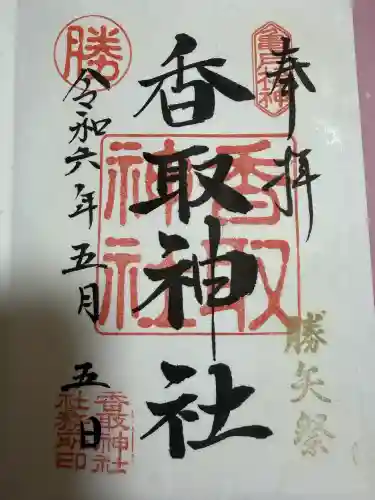 奉拝
亀戸香取神社
勝矢祭
香取神社
香取神社
勝
令和六年五月五日
香取神社
社務所印